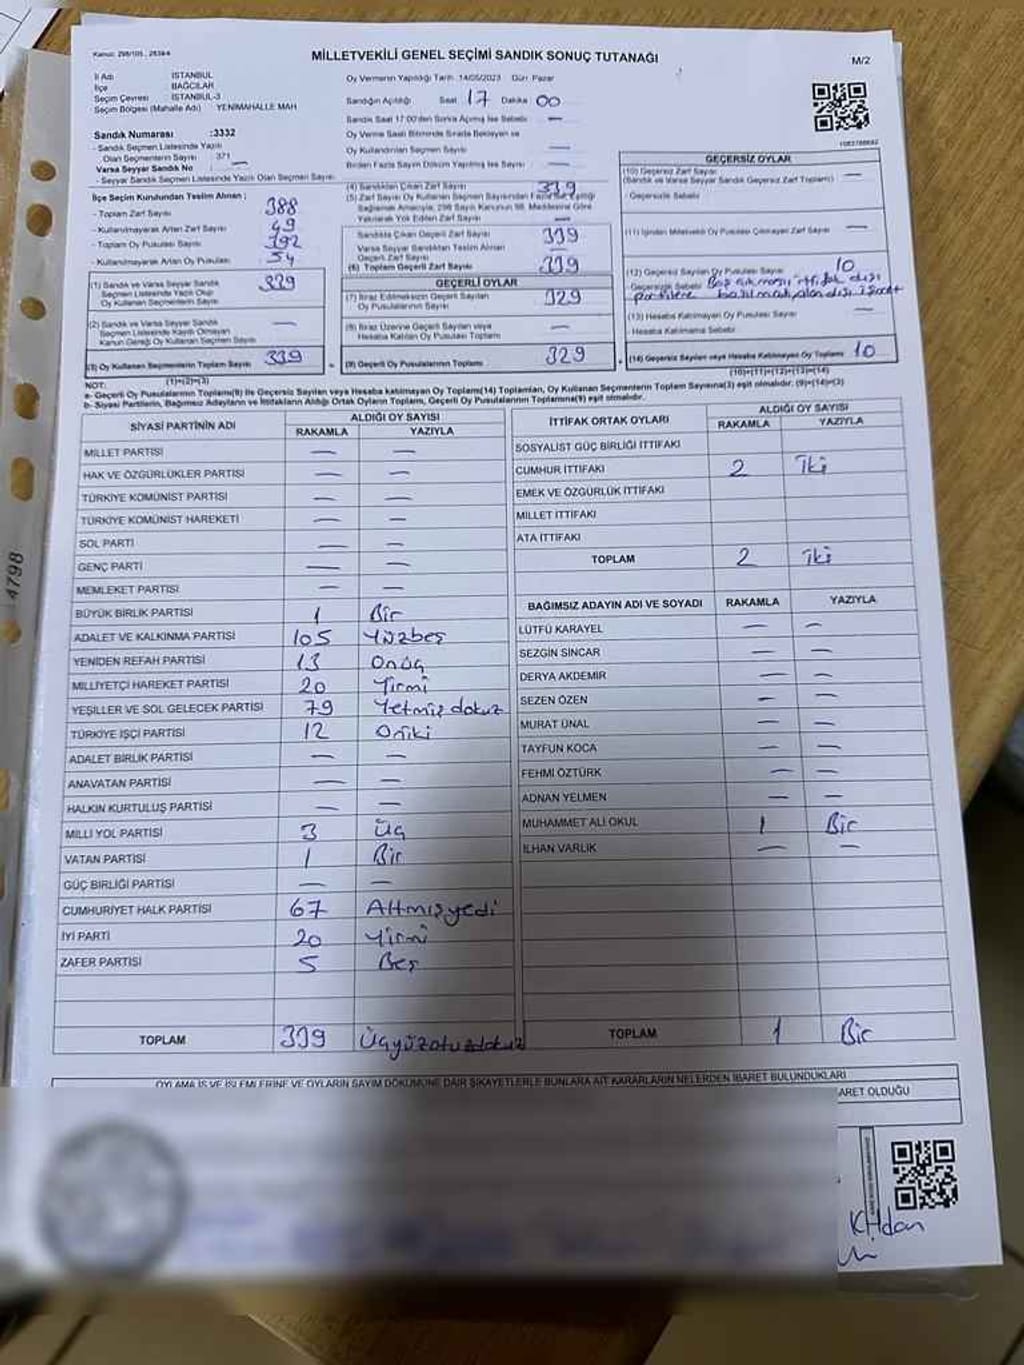 Kanun: 298/105, 2839/4
MİLLETVEKİLİ GENEL SEÇİMİ SANDIK SONUÇ TUTANAĞI
M/2
İl Adı İSTANBUL
İlçe BAĞCILAR
Seçim Çevresi İSTANBUL-3
Seçim Bölgesi (Mahalle Adı) YENİMAHALLE MAH
Sandık Numarası :3332
- Sandık Seçmen Listesinde Yazılı
Olan Seçmenlerin Sayısı : 371
Varsa Seyyar Sandık No —
- Seyyar Sandık Seçmen Listesinde Yazılı Olan Seçmen Sayısı
İlçe Seçim Kurulundan Teslim Alınan ;
- Toplam Zarf Sayısı 388
- Kullanılmayarak Artan Zarf Sayısı 49
- Toplam Oy Pusulası Sayısı 392
- Kullanılmayarak Artan Oy Pusulası 54
(1) Sandık ve Varsa Seyyar Sandık
Seçmen Listesinde Yazılı Olup
Oy Kullanan Seçmenlerin Sayısı 339
(2) Sandık ve Varsa Seyyar Sandık
Seçmen Listesinde Kayıtlı Olmayan
Kanun Gereği Oy Kullanan Seçmen Sayısı —
(3) Oy Kullanan Seçmenlerin Toplam Sayısı 339
(1)+(2)=(3)
Oy Vermenin Yapıldığı Tarih: 14/05/2023 Gün: Pazar
Sandığın Açıldığı Saat 17 Dakika 00
Sandık Saat 17:00'den Sonra Açılmış İse Sebebi —
Oy Verme Saati Bitiminde Sırada Bekleyen ve
Oy Kullandırılan Seçmen Sayısı —
Birden Fazla Sayım Döküm Yapılmış İse Sayısı —
(4) Sandıktan Çıkan Zarf Sayısı 339
(5) Zarf Sayısı Oy Kullanan Seçmen Sayısından Fazla İse Eşitliği
Sağlamak Amacıyla, 298 Sayılı Kanunun 98. Maddesine Göre
Yakılarak Yok Edilen Zarf Sayısı —
Sandıkta Çıkan Geçerli Zarf Sayısı 339
Varsa Seyyar Sandıktan Teslim Alınan
Geçerli Zarf Sayısı —
(6) Toplam Geçerli Zarf Sayısı 339
GEÇERLİ OYLAR
(7) İtiraz Edilmeksizin Geçerli Sayılan
Oy Pusulalarının Sayısı 329
(8) İtiraz Üzerine Geçerli Sayılan veya
Hesaba Katılan Oy Pusulası Toplamı —
(9) Geçerli Oy Pusulalarının Toplamı 329
GEÇERSİZ OYLAR
(10) Geçersiz Zarf Sayısı
(Sandık ve Varsa Seyyar Sandık Geçersiz Zarf Toplamı) —
- Geçersizlik Sebebi
(11) İçinden Milletvekili Oy Pusulası Çıkmayan Zarf Sayısı —
(12) Geçersiz Sayılan Oy Pusulası Sayısı 10
Geçersizlik Sebebi
(13) Hesaba Katılmayan Oy Pusulası Sayısı —
- Hesaba Katılmama Sebebi
(14) Geçersiz Sayılan veya Hesaba Katılmayan Oy Toplamı 10
(10)+(11)+(12)+(13)=(14)
NOT:
a- Geçerli Oy Pusulalarının Toplamı(9) ile Geçersiz Sayılan veya Hesaba katılmayan Oy Toplamı(14) Toplamları, Oy Kullanan Seçmenlerin Toplam Sayısına(3) eşit olmalıdır. (9)+(14)=(3)
b- Siyasi Partilerin, Bağımsız Adayların ve İttifakların Aldığı Ortak Oyların Toplamı, Geçerli Oy Pusulalarının Toplamına(9) eşit olmalıdır.
SİYASİ PARTİNİN ADI ALDIĞI OY SAYISI
RAKAMLA YAZIYLA
MİLLET PARTİSİ — —
HAK VE ÖZGÜRLÜKLER PARTİSİ — —
TÜRKİYE KOMÜNİST PARTİSİ — —
TÜRKİYE KOMÜNİST HAREKETİ — —
SOL PARTİ — —
GENÇ PARTİ — —
MEMLEKET PARTİSİ — —
BÜYÜK BİRLİK PARTİSİ 1 Bir
ADALET VE KALKINMA PARTİSİ 105 Yüzbeş
YENİDEN REFAH PARTİSİ 13 Onüç
MİLLİYETÇİ HAREKET PARTİSİ 20 Yirmi
YEŞİLLER VE SOL GELECEK PARTİSİ 79 Yetmiş dokuz
TÜRKİYE İŞÇİ PARTİSİ 12 Oniki
ADALET BİRLİK PARTİSİ — —
ANAVATAN PARTİSİ — —
HALKIN KURTULUŞ PARTİSİ — —
MİLLİ YOL PARTİSİ 3 Üç
VATAN PARTİSİ 1 Bir
GÜÇ BİRLİĞİ PARTİSİ — —
CUMHURİYET HALK PARTİSİ 67 Altmışyedi
İYİ PARTİ 20 Yirmi
ZAFER PARTİSİ 5 Beş
TOPLAM 339 Üçyüzotuzdokuz
İTTİFAK ORTAK OYLARI ALDIĞI OY SAYISI
RAKAMLA YAZIYLA
SOSYALİST GÜÇ BİRLİĞİ İTTİFAKI
CUMHUR İTTİFAKI 2 İki
EMEK VE ÖZGÜRLÜK İTTİFAKI
MİLLET İTTİFAKI
ATA İTTİFAKI
TOPLAM 2 İki
BAĞIMSIZ ADAYIN ADI VE SOYADI RAKAMLA YAZIYLA
LÜTFÜ KARAYEL — —
SEZGİN SİNCAR — —
DERYA AKDEMİR — —
SEZEN ÖZEN — —
MURAT ÜNAL — —
TAYFUN KOCA — —
FEHMİ ÖZTÜRK — —
ADNAN YELMEN — —
MUHAMMET ALİ OKUL 1 Bir
İLHAN VARLIK — —
TOPLAM 1 Bir
OYLAMA İŞ VE İŞLEMLERİNE VE OYLARIN SAYIM DÖKÜMÜNE DAİR ŞİKAYETLERLE BUNLARA AİT KARARLARIN NELERDEN İBARET BULUNDUKLARI
ARET OLDUĞU
4798